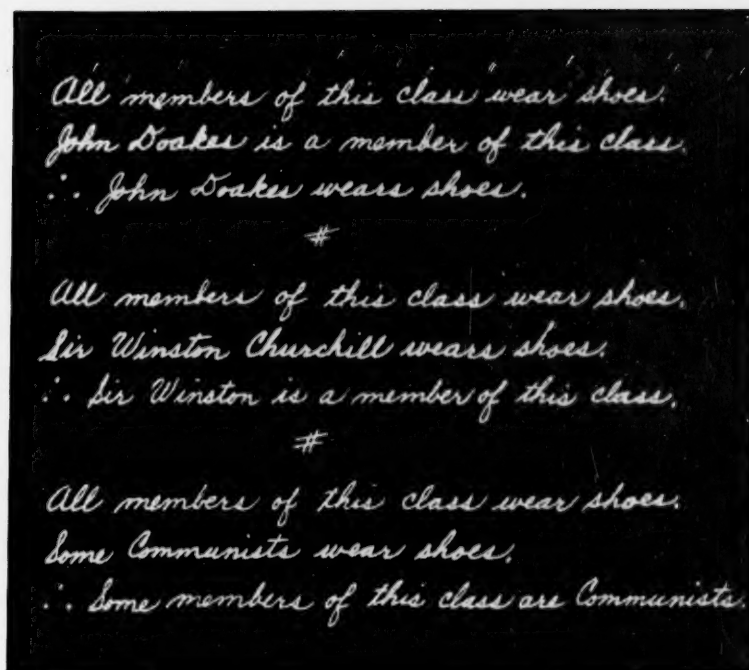 All members of this class wear shoes.
John Doakes is a member of this class.
∴ John Doakes wears shoes.
#
All members of this class wear shoes.
Sir Winston Churchill wears shoes.
∴ Sir Winston is a member of this class.
#
All members of this class wear shoes.
Some Communists wear shoes.
∴ Some members of this class are Communists.